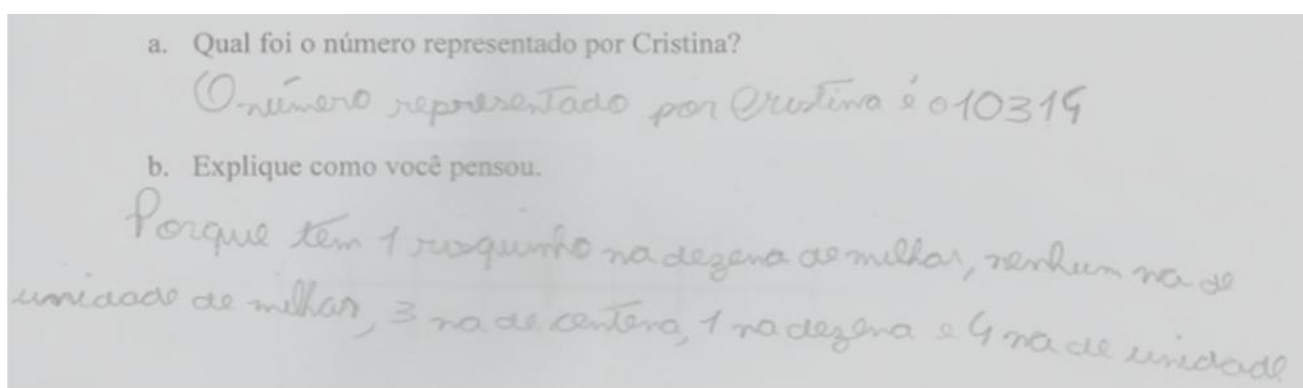 a. Qual foi o número representado por Cristina?
O número representado por Cristina é o 10314
b. Explique como você pensou.
Porque tem 1 risquinho na dezena de milhar, nenhum na de
unidade de milhar, 3 na de centena, 1 na dezena e 4 na de unidade